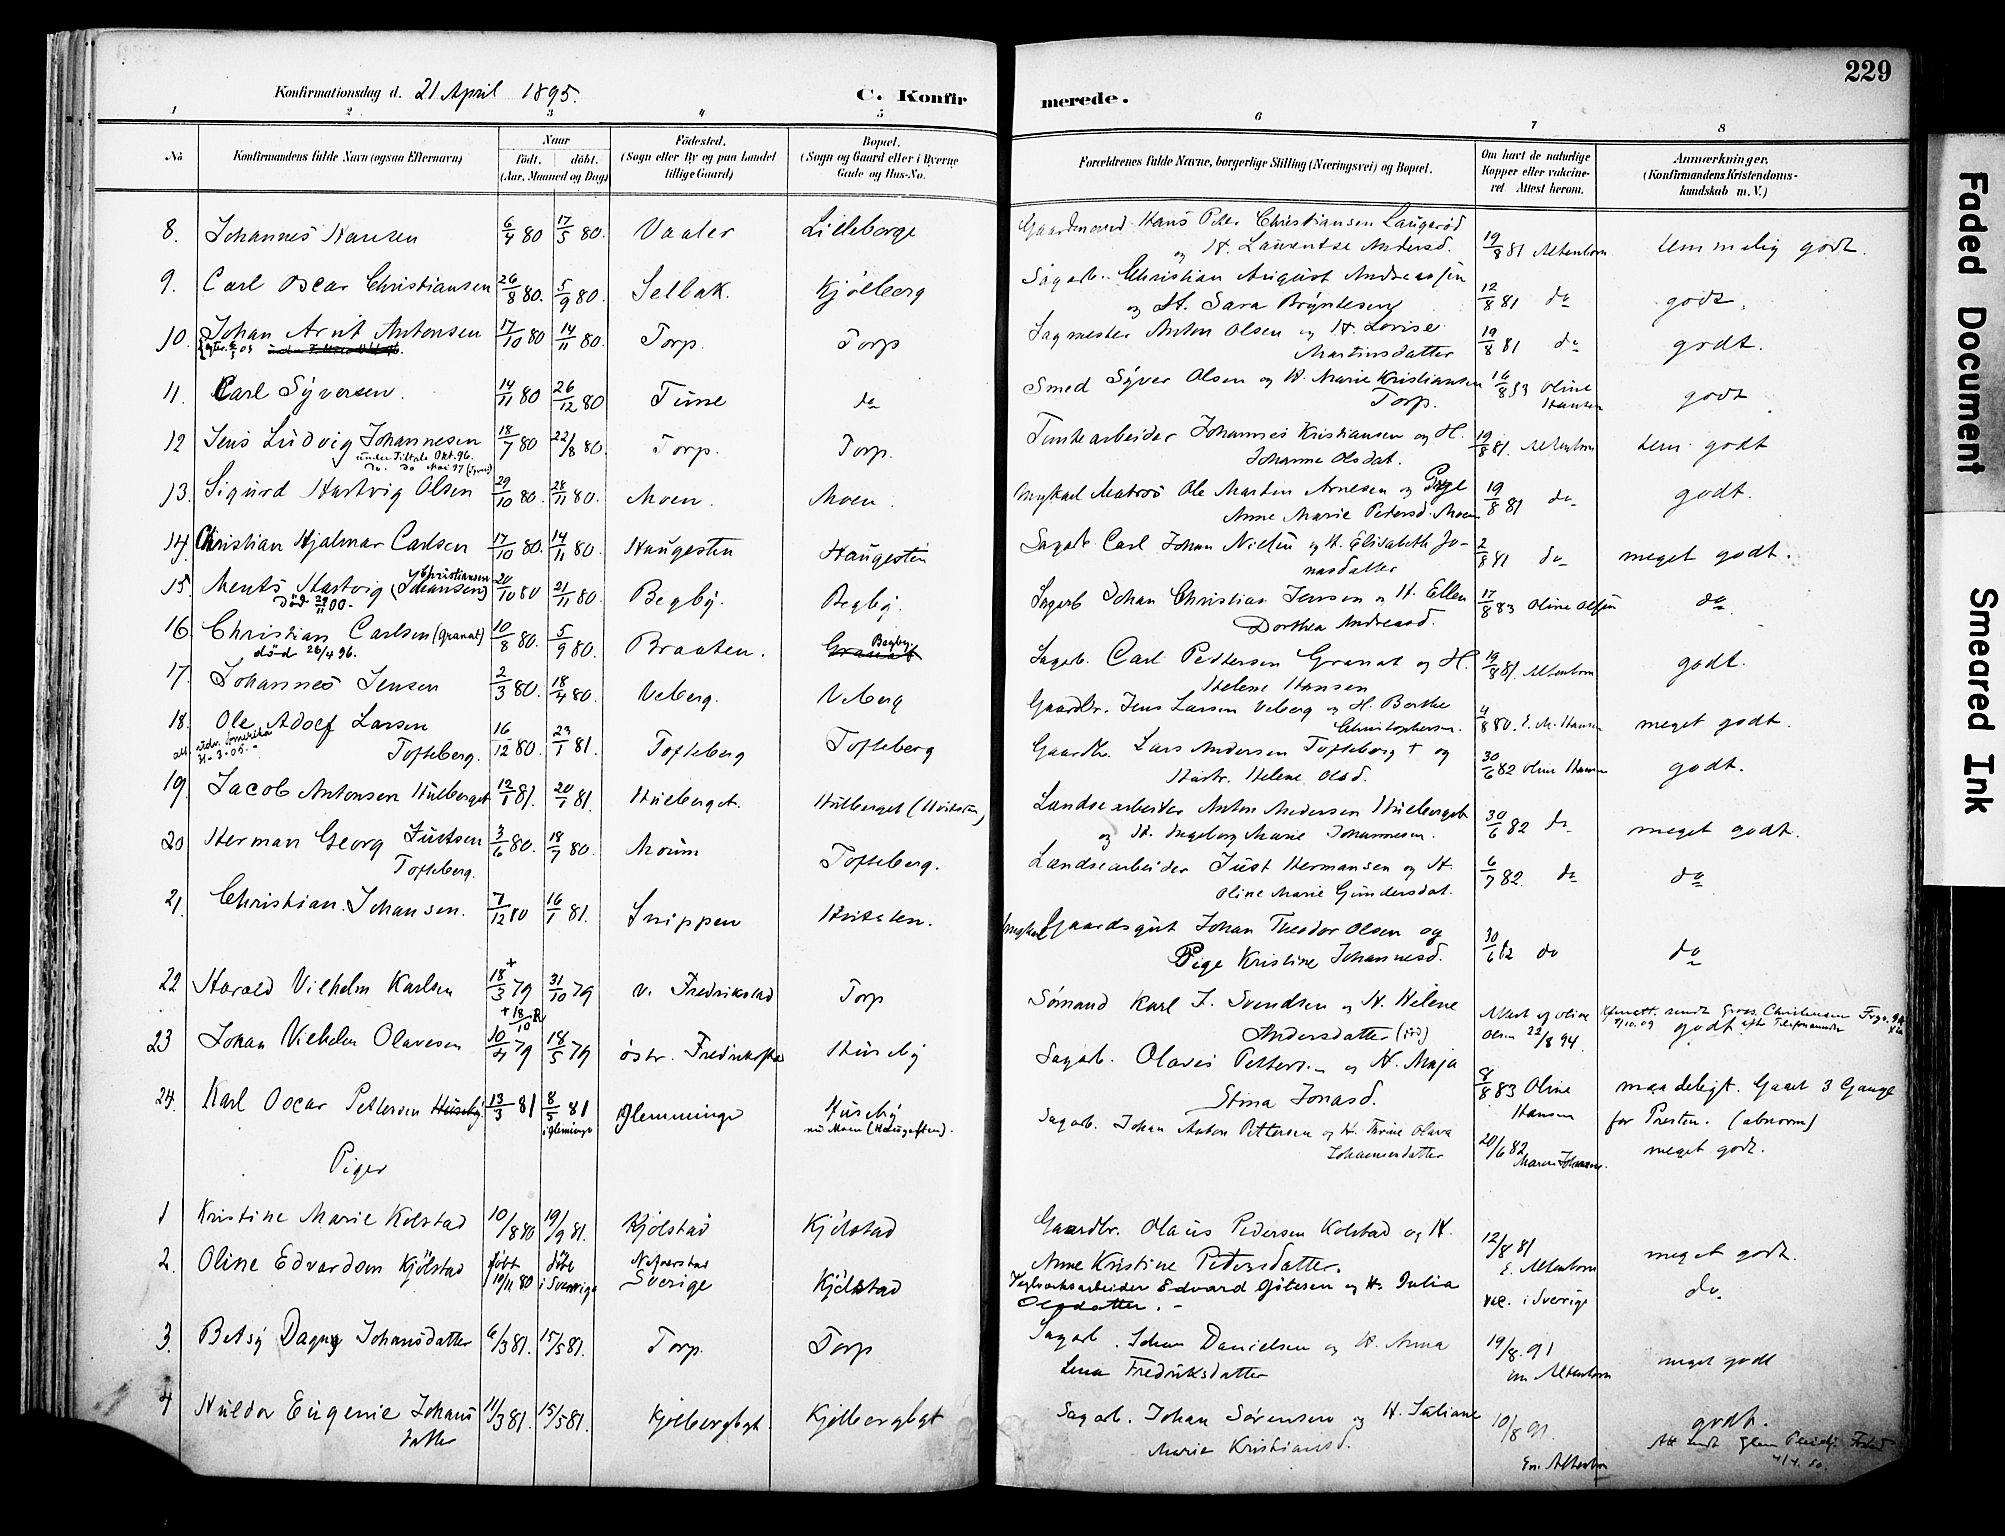 229
Konfirmationsdag d. 21 April 1895.
C. Konfirmerede.
1 2 3 4 5 6 7 8
No
Konfirmandens fulde Navn (ogsaa Efternavn)
Naar
födt. döbt.
(Aar, Maaned og Dag)
Födested.
(Sogn eller By og paa Landet
tillige Gaard)
Bopæl.
(Sogn og Gaard eller i Byerne
Gade og Hus-No.
Forældrenes fulde Navne, borgerlige Stilling (Næringsvei) og Bopæl.
Om havt de naturlige
Kopper eller vakcine-
ret Attest herom.
Anmærkninger,
(Konfirmandens Kristendoms-
kundskab m. V.)
8. Johannes Hansen 6/4 80 17/5 80. Vaaler Lilleborge
Gaardmand Hans Peter Christiansen Laugerød
og H. Laurentse Andersd. 19/8 81 Altenborn temmelig godt.
9. Carl Oscar Christiansen 26/8 80. 5/9 80. Selbak. Kjölberg
Sagarb. Christian August Andreassen
og H. Sara Bryntesen 12/8 81 do godt.
10. Johan Arnt Antonsen 17/10 80 14/11 80. Torp. Torp
Sagmester Anton Olsen og H. Lovise
Martinsdatter 19/8 81 do godt.
11. Carl Syversen. 14/11 80 26/12 80 Tune do
Smed Syver Olsen og H. Marie Kristiansen
Torp. 16/8 83 Oline
Hansen godt
12 Jens Ludvig Johannesen 18/7 80 22/8 80. Torp. Torp.
under Tiltale Okt. 96.
Do. Do Mai 97
Tomtearbeider Johannes Kristiansen og H.
Johanne Olsdat. 19/8 81. Altenborn tem. godt
13. Sigurd Hartvig Olsen 29/10 80. 28/11 80. Moen. Moen.
Ungkarl Matros Ole Martin Arnesen og Pige
Anne Marie Petersd. Moen 19/8 81 do godt.
14. Christian Hjalmar Carlsen 17/10 80. 14/11 80. Haugesten Haugesten
Sagarb. Carl Johan Nielsen og H. Elisabeth Jo-
nasdatter 2/8 81 do meget godt.
15 Ments Hartvig Christiansen (Johansen) 20/10 80 21/11 80. Begby. Begby.
död 29/11 00.
Sagarb Johan Christian Jensen og H. Ellen
Dorthea Andreasd. 17/8 83 Oline Olsen do
16. Christian Carlsen (Granat) 10/8 80. 5/9 80. Braaten. Granat Begby.
död 26/4 96.
Sagarb. Carl Pettersen Granat og H.
Helene Hansen 19/8 81. Altenborn godt.
17. Johannes Jensen 2/3 80. 18/4 80. Veberg. Veberg
Gaardbr. Jens Larsen Veberg og H. Berthe
Christophersen. 4/8 80. E. M. Hansen meget godt.
18. Ole Adolf Larsen
Tofteberg. 16/12 80. 23/1 81. Tofteberg Tofteberg
Gaardbr. Lars Andersen Tofteberg + og
Hustr. Helene Olsd. 30/6 82 Oline Hansen godt.
19. Jacob Antonsen Hulberget 12/1 81. 20/1 81. Hulberget. Hulberget (Hvitsten)
Landsearbeider Anton Andersen Hulberget
og H. Ingeborg Marie Johannesen. 30/6 82 do meget godt.
20 Herman Georg Justsen
Tofteberg. 3/6 80. 18/7 80. Moum Tofteberg.
Landsearbeider Just Hermansen og H.
Oline Marie Gundersdat. 6/7 82. do do
21. Christian Johansen. 7/12 80 16/1 81. Snippen Hvitsten.
Ungkarl Gaardsgut Johan Theodor Olsen og
Pige Kristine Johannesd. 30/6 82 do do
22 Harald Vilhelm Karlsen 18/3 79 31/10 79 v. Fredrikstad Torp
Sømand Karl J. Svendsen og H. Helene
Andersdatter (død) Attest af Oline
Olsen 22/8 94. godt
23 Johan Vilhelm Olavesen 10/4 79 18/5 79 östr. Fredrikstad Huseby
Sagarb. Olaves Pettersen og H. Maja
Stina Jonasd. 8/8 83 Oline
Hansen maadeligt. Gaaet 3 Gange
for Presten. (abnorm)
24. Karl Oscar Pettersen Huseby 13/3 81 8/5 81 i Glemminge Glemminge Huseby
nu Moen (Haugesten).
Sagarb. Johan Anton Pettersen og H. Thrine Olava
Johannesdatter 20/6 82 meget godt.
Piger
1 Kristine Marie Kolstad 10/8 80 19/9 81. Kjölstad Kjölstad
Gaardbr. Olaus Pedersen Kolstad og H.
Anne Kristine Petersdatter. 12/8 81
E. Altenborn meget godt.
2. Oline Edvardsen Kjölstad født
10/11 80 döbt
i Sverrige Sverige Kjölstad
Teglverksarbeider Edvard Götesen og H. Julia
Olsdatter. - vac. i Sverige do.
3. Betsy Dagny Johansdatter 6/3 81. 15/5 81. Torp. Torp.
Sagarb. Johan Danielsen og H. Anna
Lena Fredriksdatter 19/8. 91
Altenborn meget godt
4 Huldor Eugenie Johans
datter 11/3 81. 15/5 81. Kjölbergbgt. Kjölbergbgt
Sagarb. Johan Sørensen og H. Juliane
Marie Kristiansd. 10/8 91.
Em. Altenborn godt.
Faded Document
Smeared Ink